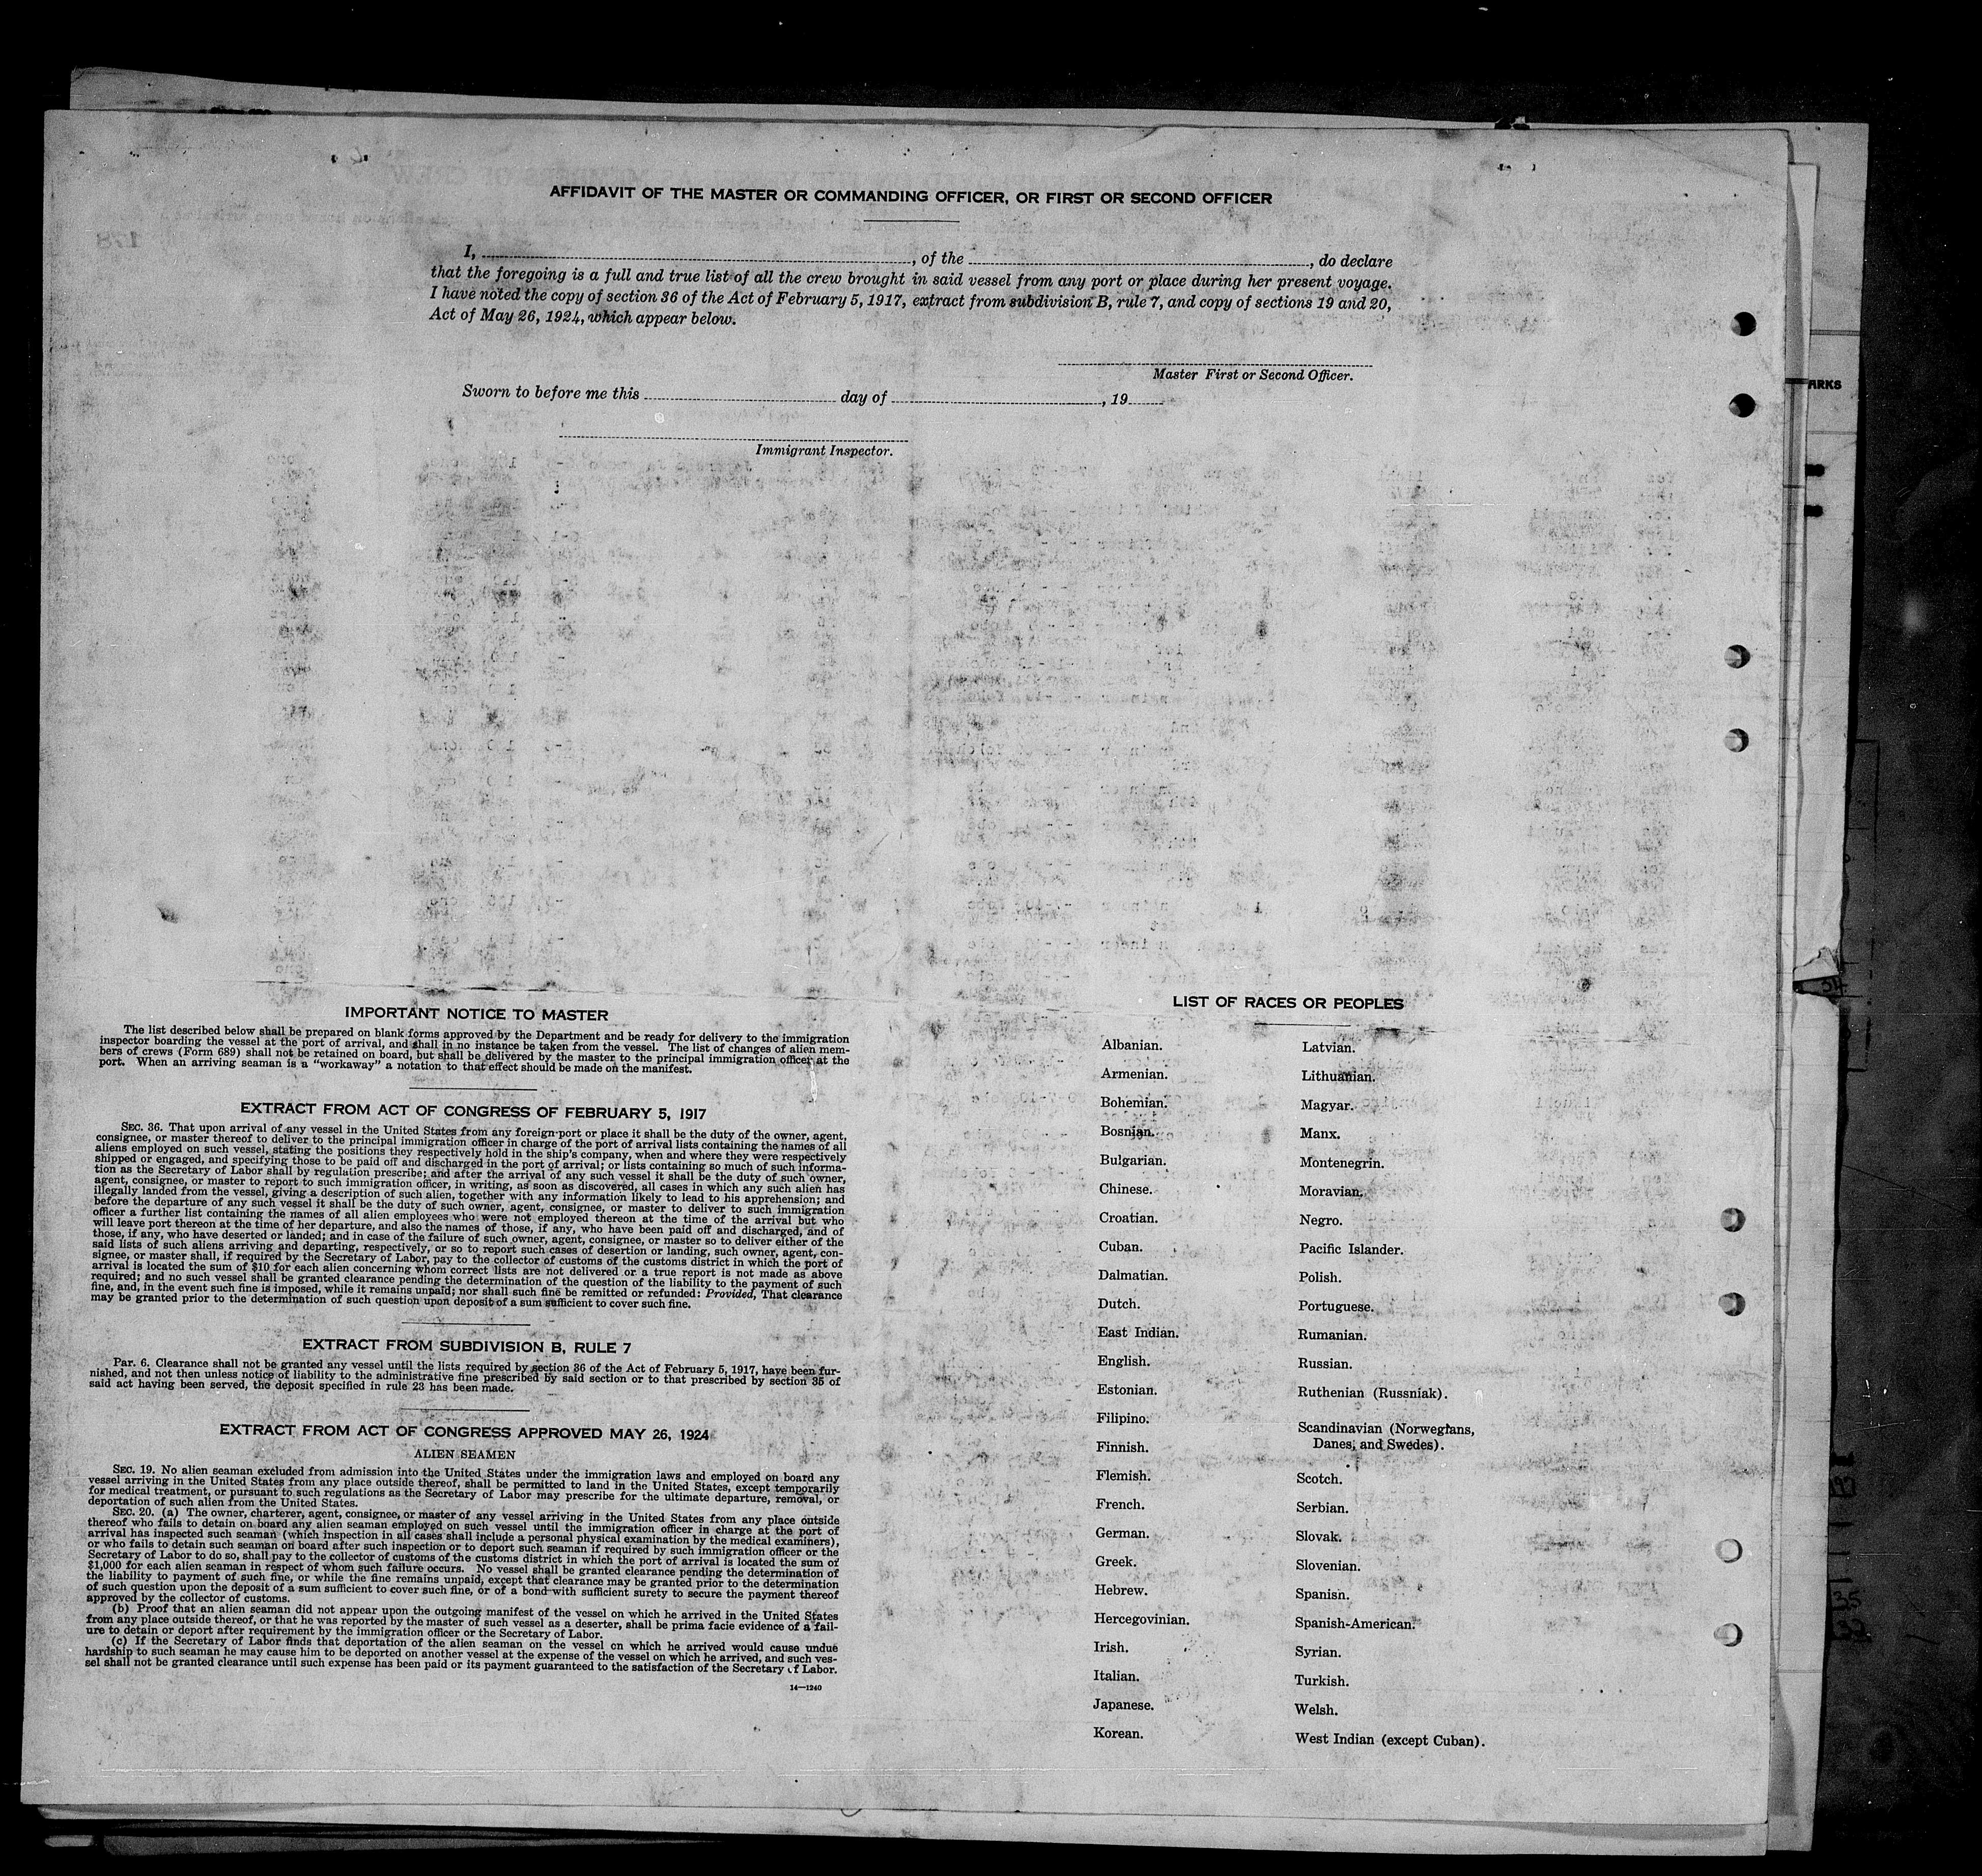 AFFIDAVIT OF THE MASTER OR COMMANDING OFFICER, OR FIRST OR SECOND OFFICER
I, , of the , do declare
that the foregoing is a full and true list of all the crew brought in said vessel from any port or place during her present voyage.
I have noted the copy of section 36 of the Act of February 5, 1917, extract from subdivision B, rule 7, and copy of sections 19 and 20,
Act of May 26, 1924, which appear below.
Master First or Second Officer.
Sworn to before me this day of , 19
Immigrant Inspector.
IMPORTANT NOTICE TO MASTER
The list described below shall be prepared on blank forms approved by the Department and be ready for delivery to the immigration
inspector boarding the vessel at the port of arrival, and shall in no instance be taken from the vessel. The list of changes of alien mem-
bers of crews (Form 689) shall not be retained on board, but shall be delivered by the master to the principal immigration officer at the
port. When an arriving seaman is a "workaway" a notation to that effect should be made on the manifest.
EXTRACT FROM ACT OF CONGRESS OF FEBRUARY 5, 1917
SEC. 36. That upon arrival of any vessel in the United States from any foreign port or place it shall be the duty of the owner, agent,
consignee, or master thereof to deliver to the principal immigration officer in charge of the port of arrival lists containing the names of all
aliens employed on such vessel, stating the positions they respectively hold in the ship's company, when and where they were respectively
shipped or engaged, and specifying those to be paid off and discharged in the port of arrival; or lists containing so much of such informa-
tion as the Secretary of Labor shall by regulation prescribe; and after the arrival of any such vessel it shall be the duty of such owner,
agent, consignee, or master to report to such immigration officer, in writing, as soon as discovered, all cases in which any such alien has
illegally landed from the vessel, giving a description of such alien, together with any information likely to lead to his apprehension; and
before the departure of any such vessel it shall be the duty of such owner, agent, consignee, or master to deliver to such immigration
officer a further list containing the names of all alien employees who were not employed thereon at the time of the arrival but who
will leave port thereon at the time of her departure, and also the names of those, if any, who have been paid off and discharged, and of
those, if any, who have deserted or landed; and in case of the failure of such owner, agent, consignee, or master so to deliver either of the
said lists of such aliens arriving and departing, respectively, or so to report such cases of desertion or landing, such owner, agent, con-
signee, or master shall, if required by the Secretary of Labor, pay to the collector of customs of the customs district in which the port of
arrival is located the sum of $10 for each alien concerning whom correct lists are not delivered or a true report is not made as above
required; and no such vessel shall be granted clearance pending the determination of the question of the liability to the payment of such
fine, and, in the event such fine is imposed, while it remains unpaid; nor shall such fine be remitted or refunded: Provided, That clearance
may be granted prior to the determination of such question upon deposit of a sum sufficient to cover such fine.
EXTRACT FROM SUBDIVISION B, RULE 7
Par. 6. Clearance shall not be granted any vessel until the lists required by section 36 of the Act of February 5, 1917, have been fur-
nished, and not then unless notice of liability to the administrative fine prescribed by said section or to that prescribed by section 35 of
said act having been served, the deposit specified in rule 23 has been made.
EXTRACT FROM ACT OF CONGRESS APPROVED MAY 26, 1924
ALIEN SEAMEN
SEC. 19. No alien seaman excluded from admission into the United States under the immigration laws and employed on board any
vessel arriving in the United States from any place outside thereof, shall be permitted to land in the United States, except temporarily
for medical treatment, or pursuant to such regulations as the Secretary of Labor may prescribe for the ultimate departure, removal, or
deportation of such alien from the United States.
SEC. 20. (a) The owner, charterer, agent, consignee, or master of any vessel arriving in the United States from any place outside
thereof who fails to detain on board any alien seaman employed on such vessel until the immigration officer in charge at the port of
arrival has inspected such seaman (which inspection in all cases shall include a personal physical examination by the medical examiners),
or who fails to detain such seaman on board after such inspection or to deport such seaman if required by such immigration officer or the
Secretary of Labor to do so, shall pay to the collector of customs of the customs district in which the port of arrival is located the sum of
$1,000 for each alien seaman in respect of whom such failure occurs. No vessel shall be granted clearance pending the determination of
the liability to payment of such fine, or while the fine remains unpaid, except that clearance may be granted prior to the determination
of such question upon the deposit of a sum sufficient to cover such fine, or of a bond with sufficient surety to secure the payment thereof
approved by the collector of customs.
(b) Proof that an alien seaman did not appear upon the outgoing manifest of the vessel on which he arrived in the United States
from any place outside thereof, or that he was reported by the master of such vessel as a deserter, shall be prima facie evidence of a fail-
ure to detain or deport after requirement by the immigration officer or the Secretary of Labor.
(c) If the Secretary of Labor finds that deportation of the alien seaman on the vessel on which he arrived would cause undue
hardship to such seaman he may cause him to be deported on another vessel at the expense of the vessel on which he arrived, and such ves-
sel shall not be granted clearance until such expense has been paid or its payment guaranteed to the satisfaction of the Secretary of Labor.
14—1240
LIST OF RACES OR PEOPLES
Albanian.
Armenian.
Bohemian.
Bosnian.
Bulgarian.
Chinese.
Croatian.
Cuban.
Dalmatian.
Dutch.
East Indian.
English.
Estonian.
Filipino.
Finnish.
Flemish.
French.
German.
Greek.
Hebrew.
Hercegovinian.
Irish.
Italian.
Japanese.
Korean.
Latvian.
Lithuanian.
Magyar.
Manx.
Montenegrin.
Moravian.
Negro.
Pacific Islander.
Polish.
Portuguese.
Rumanian.
Russian.
Ruthenian (Russniak).
Scandinavian (Norwegians,
Danes, and Swedes).
Scotch.
Serbian.
Slovak.
Slovenian.
Spanish.
Spanish-American.
Syrian.
Turkish.
Welsh.
West Indian (except Cuban).
ARKS
34
35